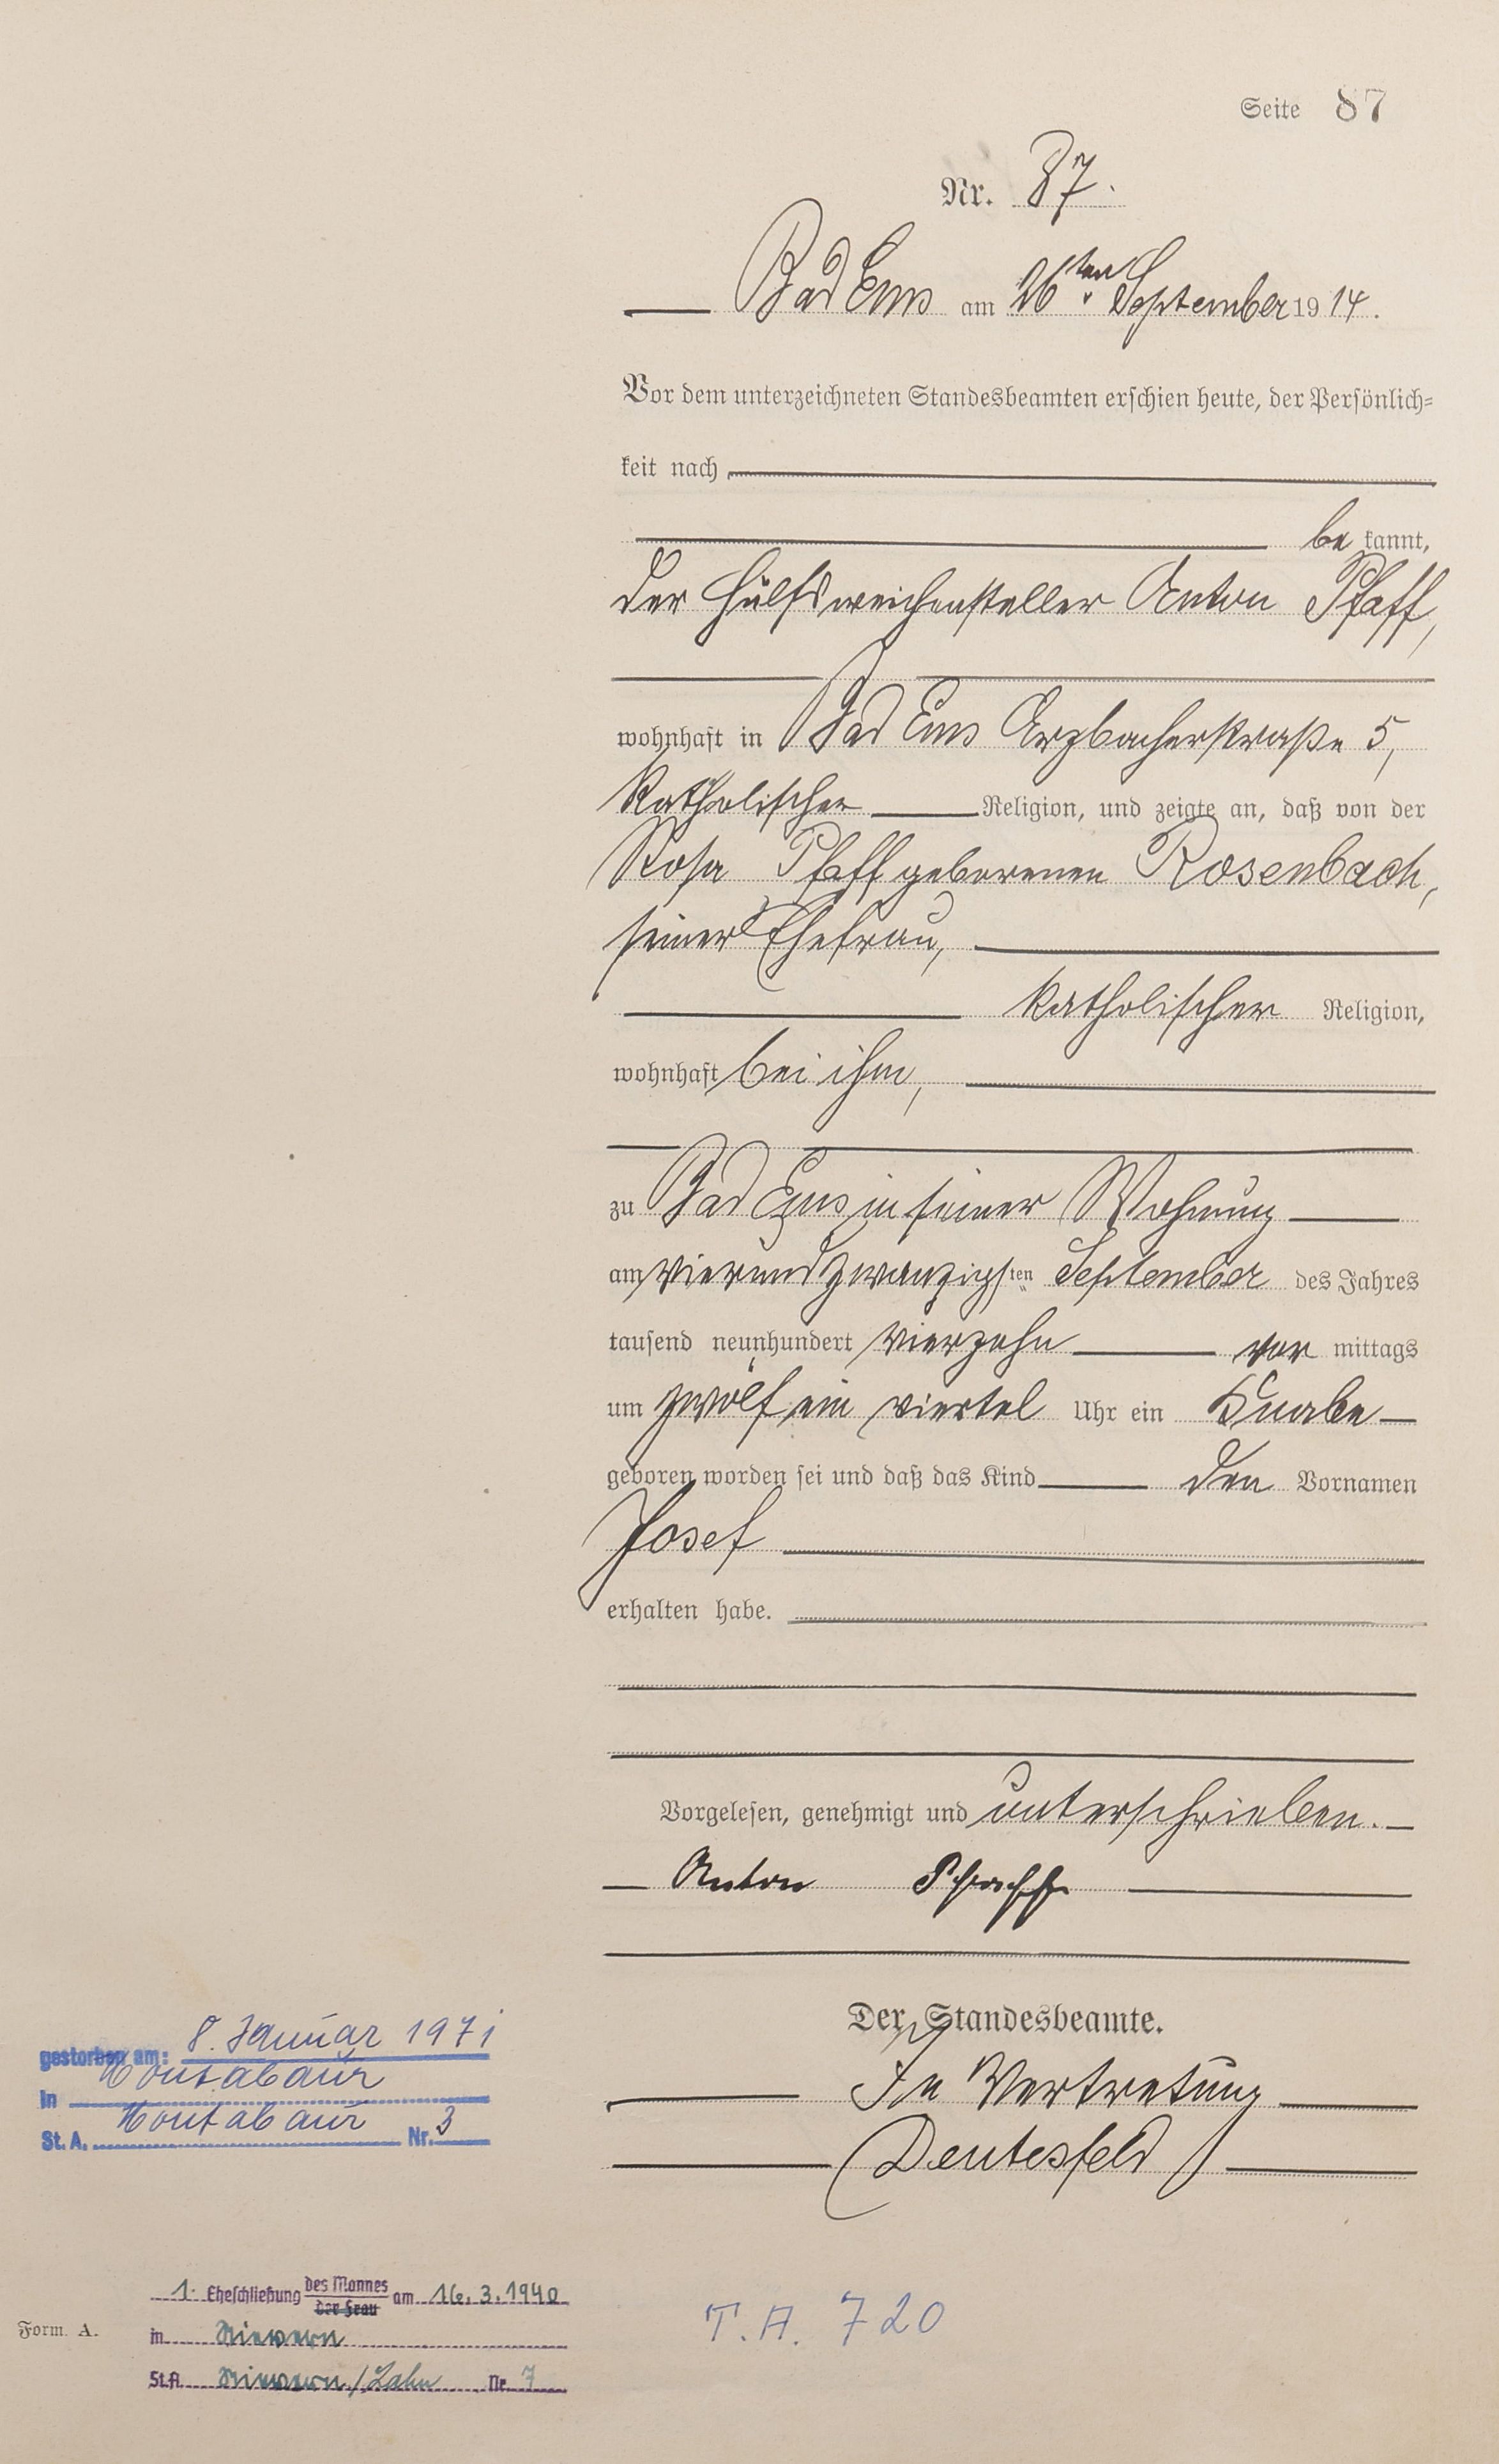 Seite 87
Nr. 87.
Bad Ems am 26ten September 1914.
Vor dem unterzeichneten Standesbeamten erschien heute, der Persönlich-
keit nach
bekannt,
der Hülfsweichensteller Anton Pfaff,
wohnhaft in Bad Ems Arzbacherstraße 5,
katholischer Religion, und zeigte an, daß von der
Rosa Pfaff geborenen Rosenbach,
seiner Ehefrau,
katholischer Religion,
wohnhaft bei ihm,
zu Bad Ems in seiner Wohnung
am vierundzwanzigsten September des Jahres
tausend neunhundert vierzehn vormittags
um zwölf ein viertel Uhr ein Knabe
geboren worden sei und daß das Kind den Vornamen
Josef
erhalten habe.
Vorgelesen, genehmigt und unterschrieben.
Anton Pfaff
Der Standesbeamte.
In Vertretung
Deutesfeld
gestorben am: 8. Januar 1971
in Montabaur
St. A. Montabaur Nr. 3
1. Eheschließung des Mannes der Frau am 16.3.1940
in Nievern
St.A. Nievern/Lahn Nr. 7
Form. A.
T.A. 720